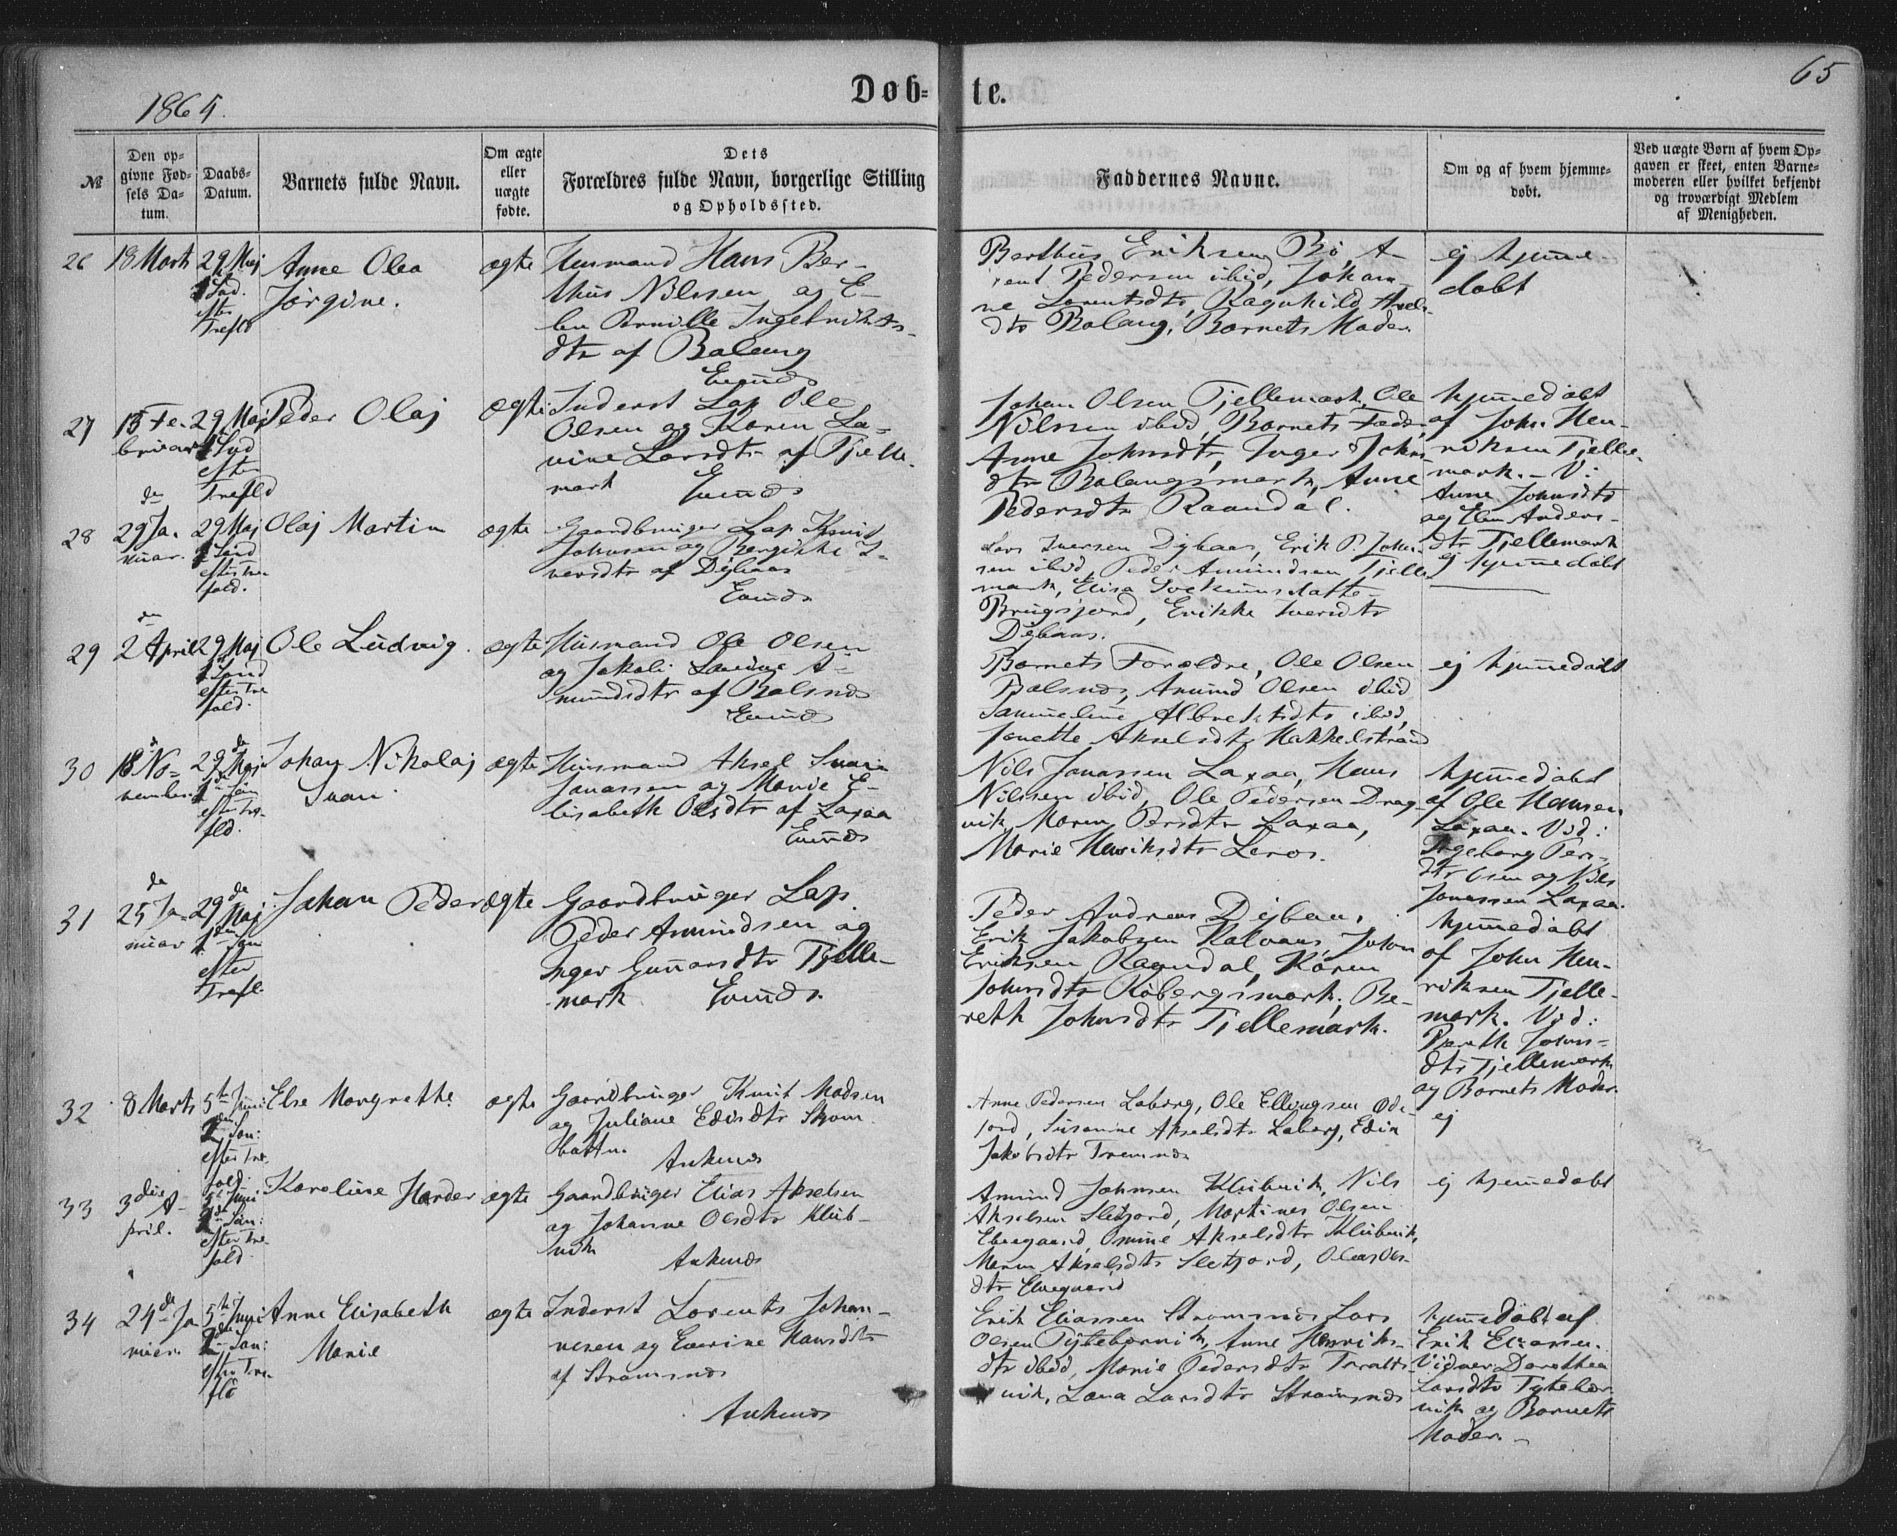 65
Døb- te.
1864.
№
Den opgivne Fødsels Datum.
Daabs-Datum.
Barnets fulde Navn.
Om ægte eller uægte fødte.
Dets Forældres fulde Navn, borgerlige Stilling og Opholdssted.
Faddernes Navne.
Om og af hvem hjemmedøbt.
Ved uægte Børn af hvem Opgaven er skeet, enten Barnemoderen eller hvilket bekjendt og troværdigt Medlem af Menigheden.
26 18 Marts 29 Maj 1 Sød. efter Trefld
Anne Olea
Jørgine.
ægte
Husmand Hans Ber-
thus Nilssen og E-
len Pernille Ingebrikts-
dtr af Balang
Evenæs
Berthus Eriksen Bø, A-
rent Pedersen ibid, Johan-
ne Lorentsdtr, Ragnhild Axels-
dtr Balang, Barnets Moder.
ej hjemme
døbt
27 13 Fe-
bruar 29 Maj 1 Sød efter Trefld
Peder Olaj
ægte
Inderst Lap Ole
Olsen og Karen La-
vine Larsdtr af Tjelle-
mark Evenæs
Johan Olsen Tjellemark, Ole
Nilssen ibid, Barnets Fader,
Anne Johnsdtr, Inger Johns-
dtr Balangsmark, Anne
Pedersdtr Raandal.
hjemmedøbt
af John Hen-
riksen Tjelle-
mark. - V:
Anne Johnsdtr
og Elen Anders-
dtr Tjellemark
28 29 de Ja-
nuar. 29 Maj 1 Sønd efter Tre-
fold.
Olaj Martin
ægte
Gaardbruger Lap Knut
Johnsen og Bergitthe I-
versdtr af Dybaas
Evenæs
Lars Iversen Dybaas, Erik P. John-
sen ibid, Peder Amundsen Tjelle-
mark, Elisa
Brugsjord, Erikke Iversdtr
Dybaas.
ej hjemmedøbt
29 2 den April 29 Maj 1 Sønd efter Tre-
fold.
Ole Ludvig.
ægte
Husmand Ole Olsen
og Jakobi Lavine A-
mundsdtr af Balsnæs
Evenæs
Barnets Forældre, Ole Olsen
Balsnæs, Amund Olsen ibid
Sammeline Albrektsdtr ibid,
Janette Akselsdtr Hakkelstrand
ej hjemmedøbt
30 18 No-
vember. 29 de Maj 1 Søn efter Tre-
fld.
Johan Nikolaj
Ivan.
ægte
Husmand Aksel
Jonassen og Marie E-
lisabeth Olsdtr af Laxaa
Evenæs
Nils Jonassen Laxaa, Hans
Nilssen ibid, Ole Pedersen Drag-
vik, Maren Persdtr Laxaa,
Marie Henriksdtr Leros.
hjemmedøbt
af Ole Hansen
Laxaa. Vid:
Ingeborg Pers-
dtr Osen og Nils
Jonassen Laxaa.
31 25 de Ja-
nuar 29 de Maj 1 Søn efter Trefl.
Johan Peder
ægte
Gaardbruger Lap.
Peder Amundsen og
Inger Gunnarsdtr Tjelle-
mark Evenæs.
Peder Andreas Dybaas,
Erik Jakobsen Kalvaas, John
Eriksen Raandal, Karen
Johnsdtr Kobergsmark, Be-
reth Johnsdtr Tjellemark.
hjemmedøbt
af John Hen-
riksen Tjelle-
mark. Vid:
Bereth Johns-
dtr Tjellemark
og Barnets Moder.
32 8 Marts 5te Juni 2 den Søn: efter Tre-
fold.
Else Margrethe
ægte
Gaardbruger Knut Madsen
og Juliane Edisdtr Skom-
batten.
Ankenæs
Arne Pedersen Laberg, Ole Ellingsen
, Susanne Akselsdtr Laberg, Edin
Jakobsdtr Tremnæs
ej
33 3 die A-
pril. 5te Juni 2 den Søn: efter Tre-
fold
Karoline Harder
ægte
Gaardbruger Elias Akselsen
og Johanne Olsdtr Klub-
vik
Ankenæs
Amund Johnsen Klubvik, Nils
Akselsen Sletjord, Martines Olsen
Elvegaard, Akselsdtr Klubvik,
Maren Akselsdtr Sletjord, Ols-
dtr Elvegaard
ej hjemmedøbt
34 24 de Ja-
nuar. 5te Juni 2 den Søn: efter Tre-
fld
Anne Elisabeth
Marie
ægte
Inderst Lorents Johan-
nesen og Hansdtr
af Stramsnæs
Ankenæs
Erik Eliassen Stromsnæs Lars
Olsen Tytebærvik, Anne Henriks-
dtr ibid, Marie Pedersdtr Trælds-
vik, Lana Larsdtr Stramsnæs
hjemmedøbt af
Erik Eliassen.
Vidner Dorothea
Larsdtr Tytebær-
vik og Barnets
Moder. -